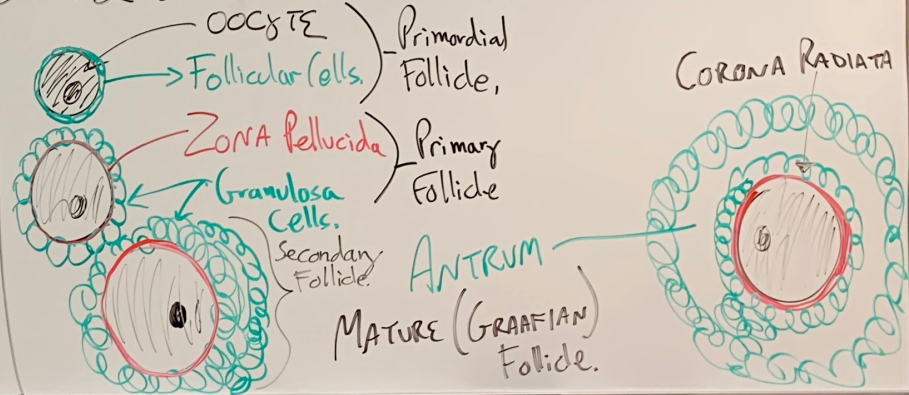 OOCYTE
Follicular Cells.
Primordial
Follicle,
ZONA Pellucida
Primary
Follicle
Granulosa
Cells.
Secondary
Follicle.
ANTRUM
MATURE (GRAAFIAN)
Follicle.
CORONA RADIATA